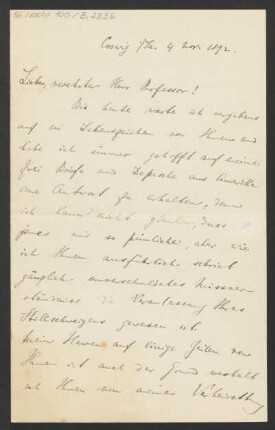 Coswig i/Sa. 4 Nov. 1892.
Lieber, verehrter Herr Professor!
Bis heute warte ich vergebens
auf ein Lebenszeichen von Ihnen und
habe ich immer gehofft auf meine
zwei Briefe und Depesche aus Amerika
eine Antwort zu erhalten, denn
ich kann nicht glauben, dass
jenes mir so peinliche, aber wie
ich Ihnen ausführlich schrieb
gänzlich unverschuldetes Missver-
ständniss die Veranlassung Ihres
Stillschweigens gewesen ist.
Mein Harren auf einige Zeilen von
Ihnen ist auch der Grund weshalb
ich Ihnen von meiner Verheirathung